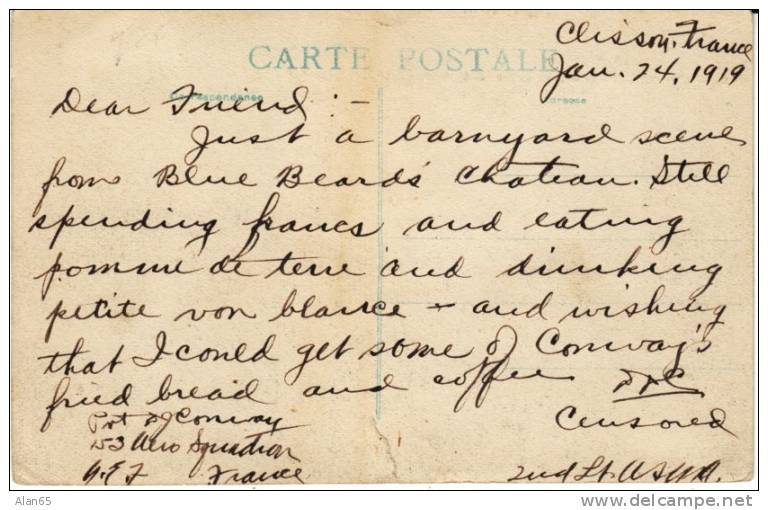 Clisson, France
CARTE POSTALE
Jan. 24, 1919
Correspondance
Adresse
Dear Friend: -
Just a barnyard scene
from Blue Beards' Chateau. Still
spending francs and eating
pomme de terre and drinking
petite von blance - and wishing
that I could get some of Conway's
fried bread and coffee
Censored
Pvt DJ Conway
153 Aero Squadron
A.E.F. France
2nd Lt. ASUSA.
© Alan65
http://www.delcampe.net